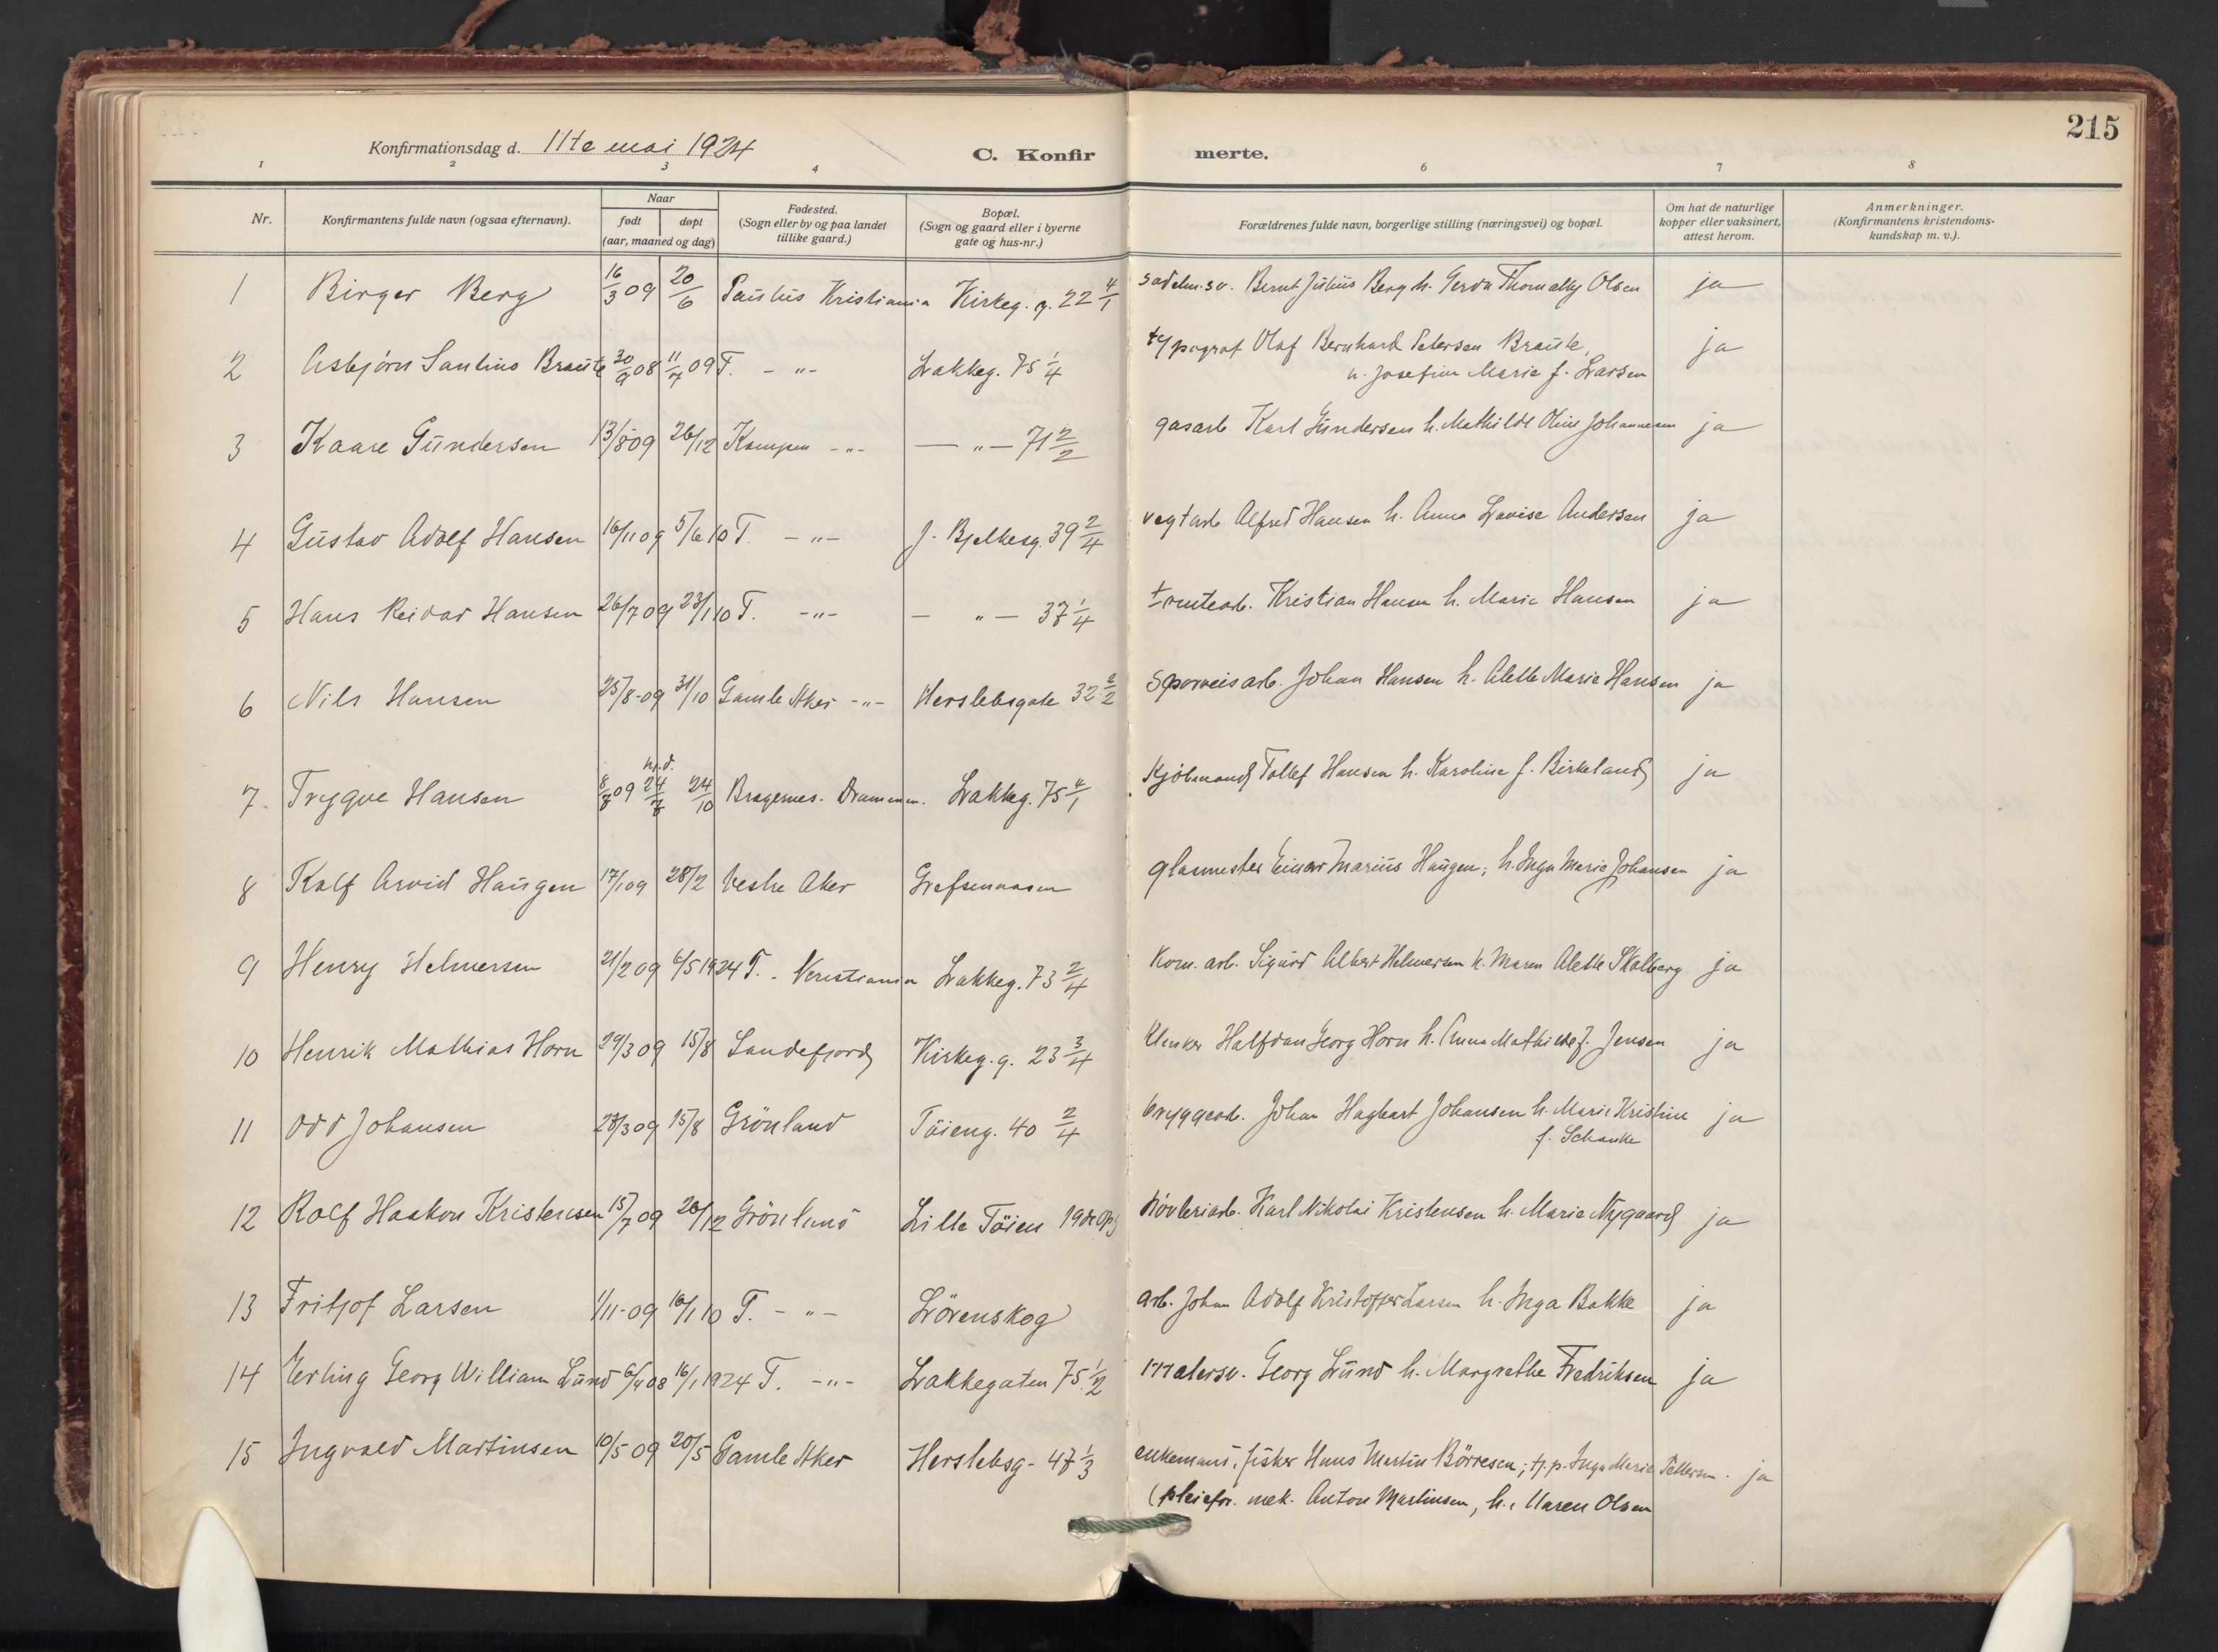 215
Konfirmationsdag d. 11te mai 1924
C. Konfir merte.
1 2 3 4 6 7 8
Nr.
Konfirmantens fulde navn (ogsaa efternavn).
Naar
født døpt
(aar, maaned og dag)
Fødested.
(Sogn eller by og paa landet
tillike gaard.)
Bopæl.
(Sogn og gaard eller i byerne
gate og hus-nr.)
Forældrenes fulde navn, borgerlige stilling (næringsvei) og bopæl.
Om hat de naturlige
kopper eller vaksinert,
attest herom.
Anmerkninger.
(Konfirmantens kristendoms-
kundskap m. v.).
1 Birger Berg 16/3 09 20/6 Paulus Kristiania Kirkeg. g. 22 4/1 sadelm. sv. Bernt Julius Berg h. Gerda Olsen ja
2 Asbjørn Santino Braute 30/9 08 11/7 09 T. - " - Lakkeg. 75 1/4 typograf Olaf Bernhard Petersen Braute, ja
h. Josefine Marie f. Larsen
3 Kaare Gundersen 13/8 09 26/12 Kampen - " - — " — 71 2/2 gasarb Karl Gundersen h. Mathilde Oline Johannesen ja
4 Gustav Adolf Hansen 16/11 09 5/6 10 T. - " - J. Bjelkesg. 39 2/4 vegtarb Alfred Hansen h. Anna Lovise Andersen ja
5 Hans Reidar Hansen 26/7 09 23/1 10 T. - " - — " — 37 1/4 Kristian Hansen h. Marie Hansen ja
6 Nils Hansen 25/8-09 31/10 Gamle Aker - " - Herslebsgate 32 2/2 Sporveisarb. Johan Hansen h. Alette Marie Hansen ja
7. Trygve Hansen 8/8 09 hj.d. 24/8 24/10 Bragernes. Drammen. Lakkeg. 75 4/1 Kjøbmand Tollef Hansen h. Karoline f. Birkeland ja
8 Ralf Arvid Haugen 17/1 09 28/2 Vestre Aker Grefsenaasen glasmester Einar Marius Haugen; h. Inga Marie Johansen ja
9 Henry Helmersen 21/2 09 6/5 1924 T. - Kristiania Lakkeg. 73 2/4 Kom. arb. Sigurd Albert Helmersen h. Maren Alette Skalberg ja
10 Henrik Mathias Horn 29/3 09 15/8 Sandefjord Kirkeg. g. 23 3/4 Klinker Halfdan Georg Horn h. Anna Mathilde f. Jensen ja
11 Odd Johansen 28/3 09 15/8 Grönland Töieng. 40 2/4 bryggearb. Johan Hagbart Johansen h. Marie Kristine ja
f. Schanke
12 Rolf Haakon Kristensen 15/7 09 26/12 Grönland Lille Töien 19 Høvleriarb. Karl Nikolai Kristensen h. Marie Nygaard ja
13 Fritjof Larsen 1/11-09 16/1 10 T. - " - Lörenskog arb. Johan Adolf Kristoffer Larsen h. Inga Bakke ja
14 Erling Georg William Lund 6/4 08 16/1 1924 T. - " - Lakkegaten 75. 1/2 Malersv. Georg Lund h. Margrethe Fredriksen ja
15 Ingvald Martinsen 10/5 09 20/5 Gamle Aker Herslebsg- 47 1/3 enkemand, fisker Hans Martin Börresen; tj. p. Inga Marie Pettersen. ja
(pleiefor. mek. Anton Martinsen, h. Maren Olsen